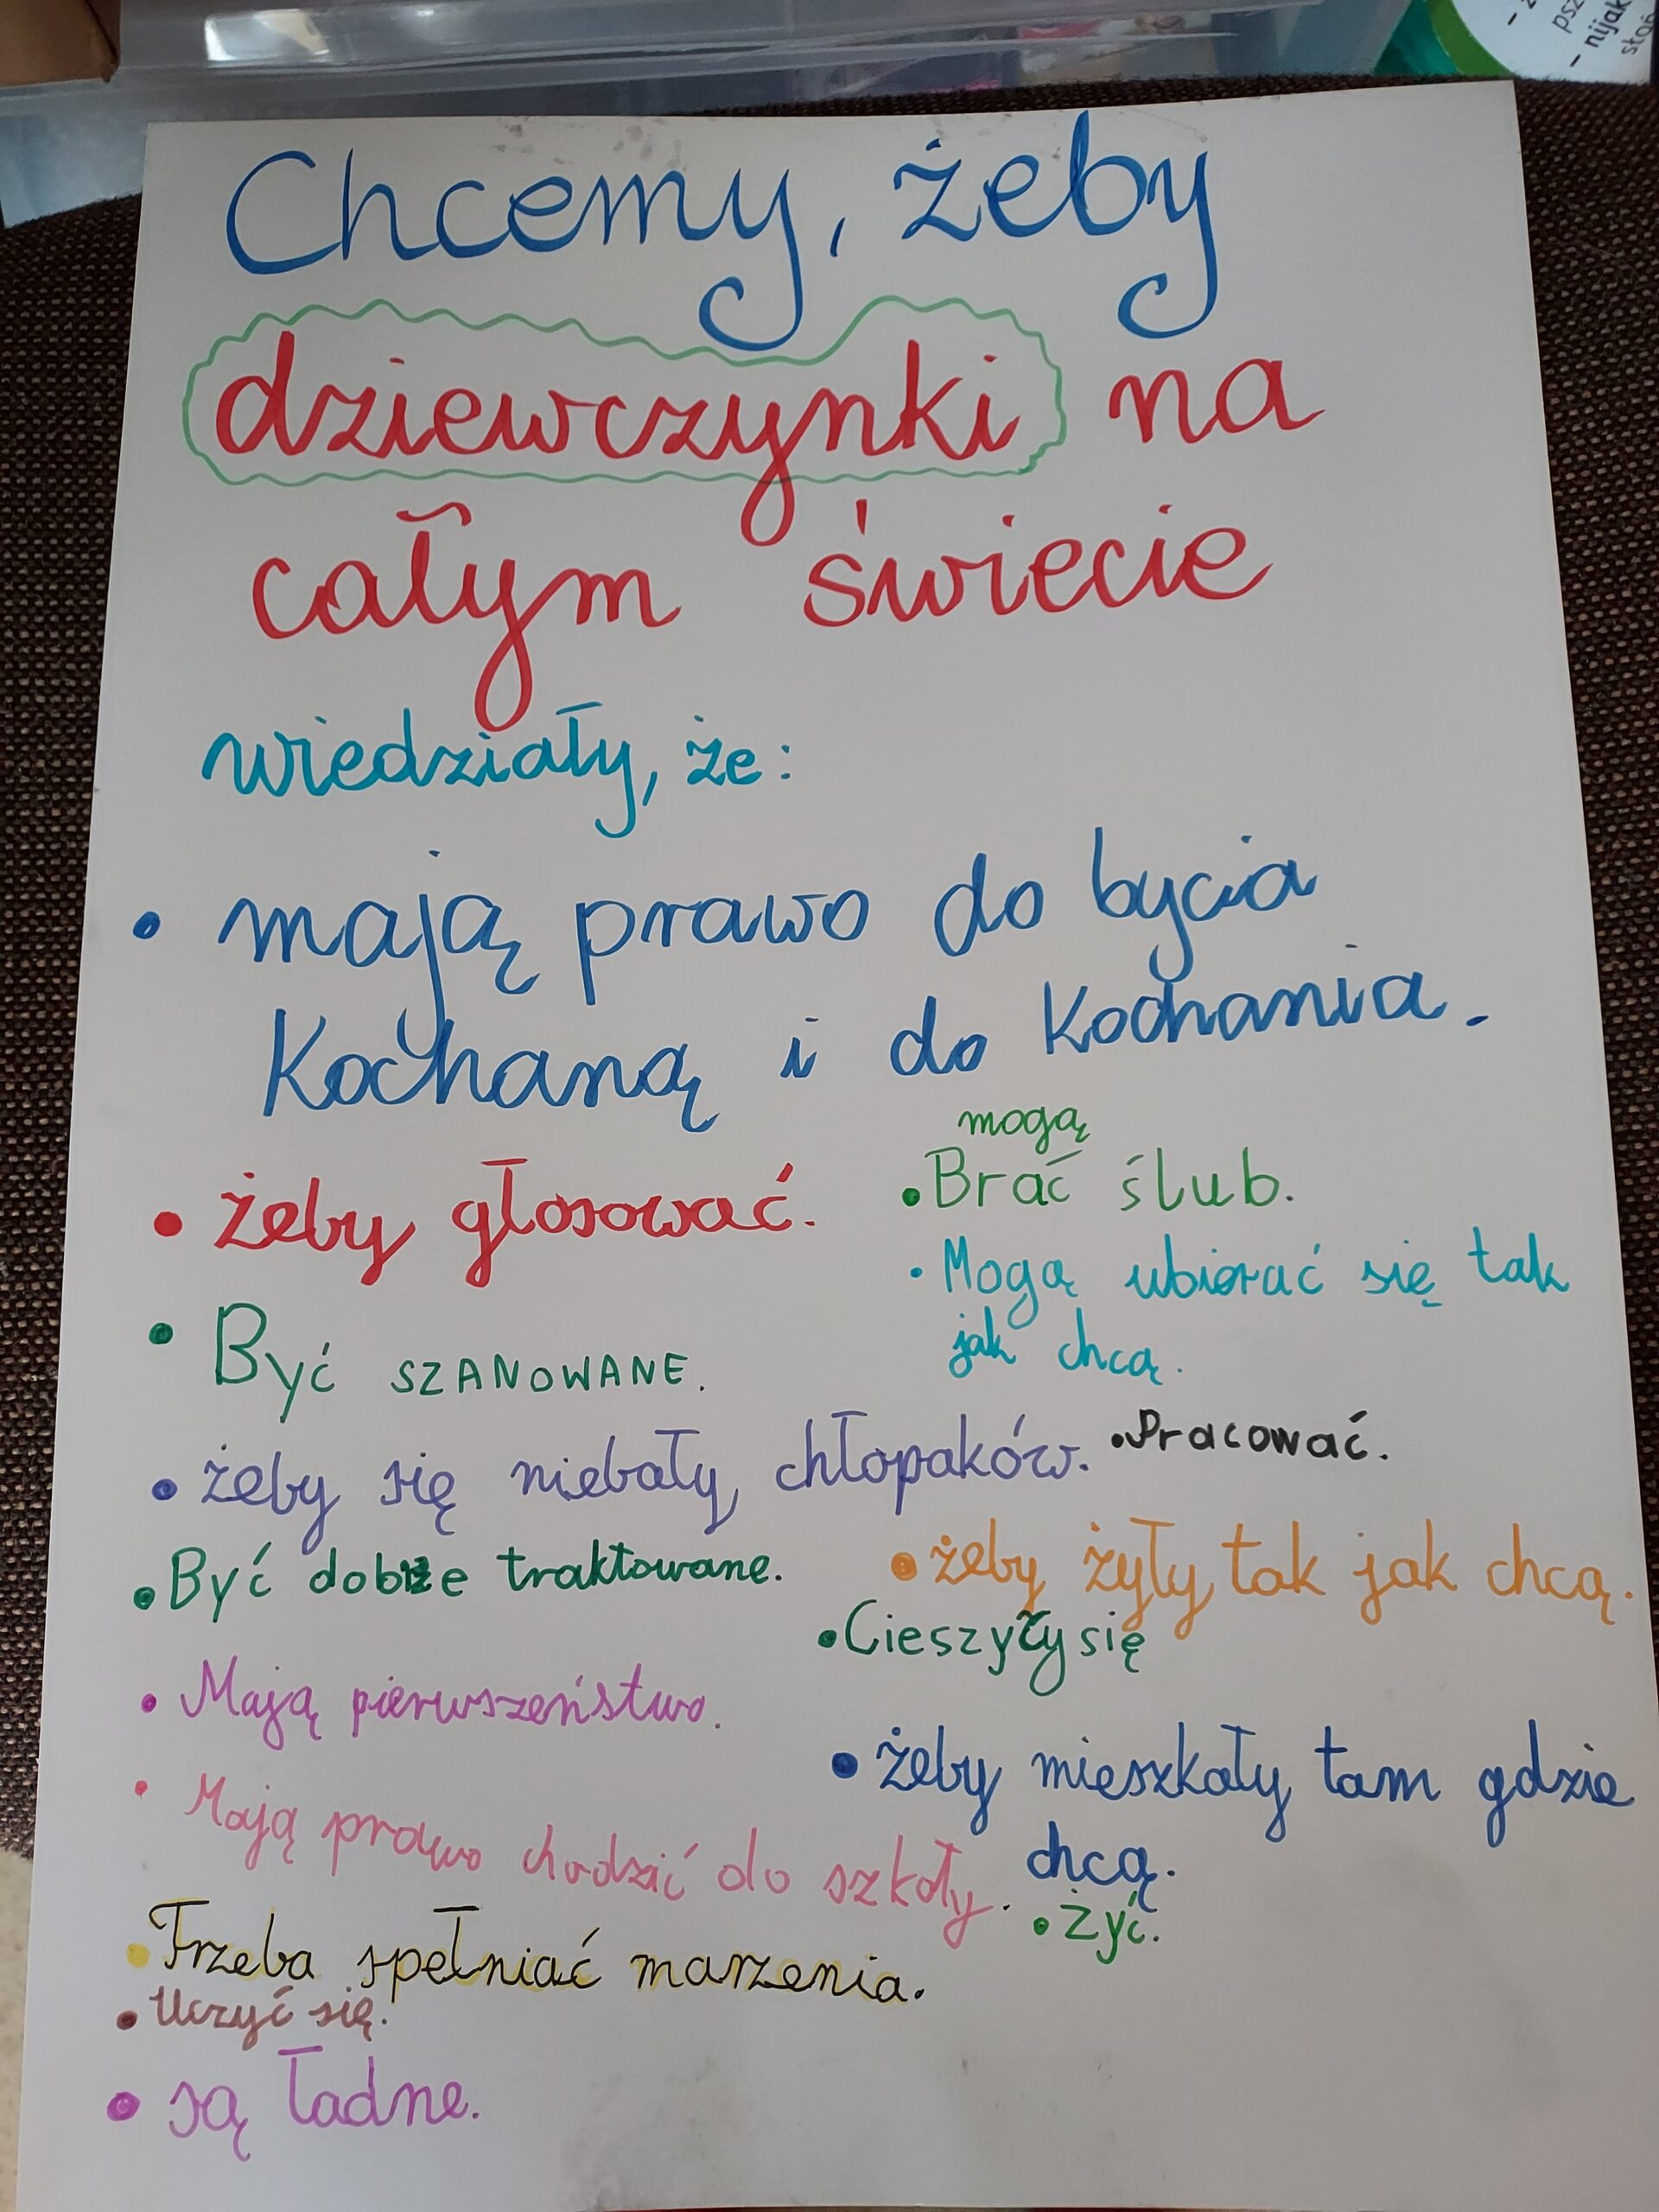 - ż
psz
- nijak
stop
Chcemy, żeby
dziewczynki na
całym świecie
wiedziały, że:
• mają prawo do bycia
Kochaną i do Kochania.
• żeby głosować.
mogą
• Brać ślub.
• Mogą ubierać się tak
jak chcą.
• Być SZANOWANE.
• żeby się niebały chłopaków.
• Pracować.
• Być dobrze traktowane.
• żeby żyły tak jak chcą.
• Cieszyły się
• Mają pierwszeństwo.
• żeby mieszkały tam gdzie
chcą.
• Mają prawo chodzić do szkoły.
• Żyć.
• Trzeba spełniać marzenia.
• Uczyć się.
• są ładne.